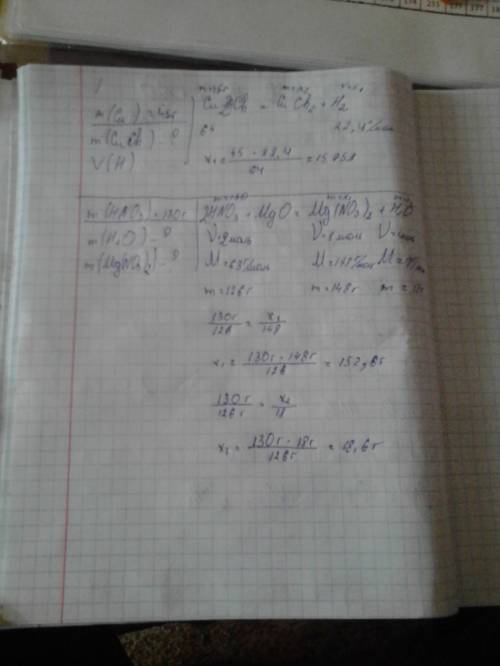 m(Cu) = 45г
m(CuCl2) - ?
V(H)
Cu 2HCl = CuCl2 + H2
64
22,4 л/моль
x1 = 45 · 22,4 / 64 = 15,75л
m(HNO3) = 130г
m(H2O) - ?
m(Mg(NO3)2) - ?
2HNO3 + MgO = Mg(NO3)2 + H2O
V = 2моль V = 1моль V = 1моль
M = 63г/моль M = 148г/моль M = 18г/моль
m = 126г m = 148г m = 18г
130г / 126 = x1 / 148
x1 = 130г · 148г / 126г = 152,6г
130г / 126г = x2 / 18
x2 = 130г · 18г / 126г = 18,6г